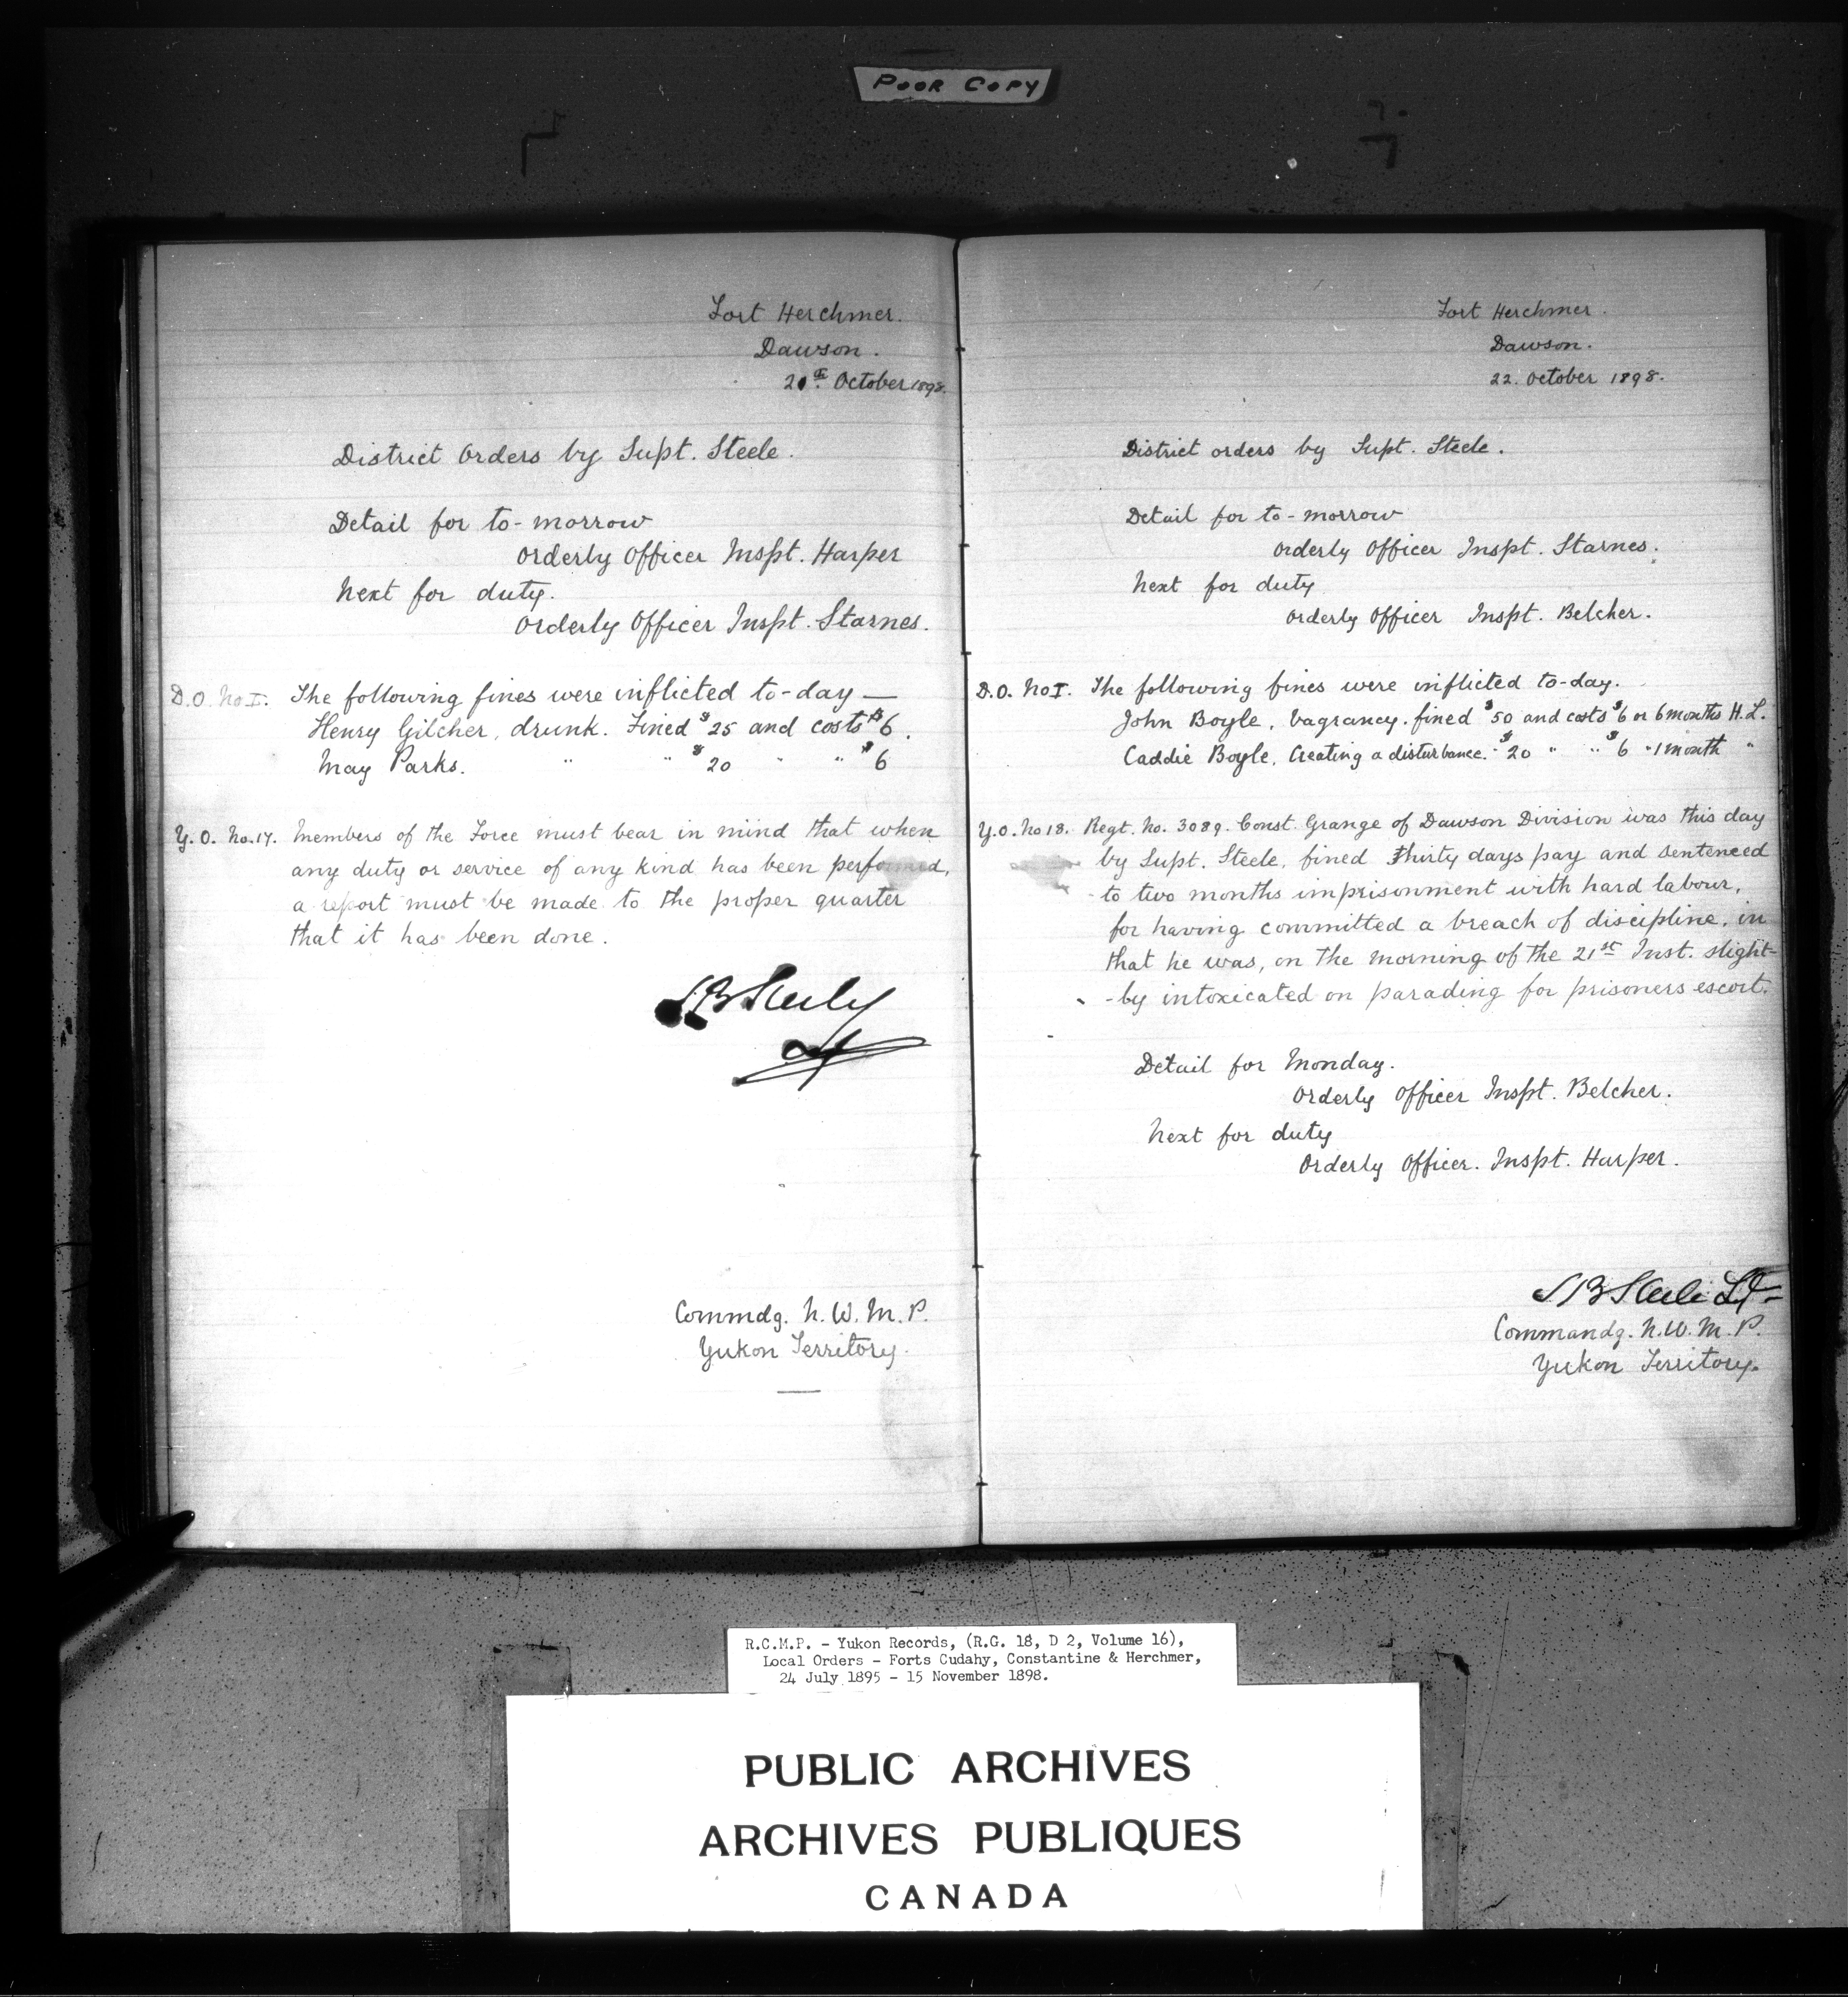 POOR COPY
Fort Herchmer.
Dawson.
21st October 1898.
District Orders by Supt. Steele.
Detail for to-morrow
Orderly Officer Inspt. Harper
Next for duty.
Orderly Officer Inspt. Starnes.
D.O. No I. The following fines were inflicted to-day —
Henry Gilcher, drunk. Fined $25 and costs $6.
May Parks. " " $20 " " $6
Y.O. No. 17. Members of the Force must bear in mind that when
any duty or service of any kind has been performed,
a report must be made to the proper quarter
that it has been done.
S B Steele
Commdg. N.W.M.P.
Yukon Territory.
Fort Herchmer.
Dawson.
22. October 1898.
District orders by Supt. Steele.
Detail for to-morrow
Orderly Officer Inspt. Starnes.
Next for duty
Orderly Officer Inspt. Belcher.
D.O. No I. The following fines were inflicted to-day.
John Boyle, Vagrancy. fined $50 and costs $6 or 6 months H.L.
Caddie Boyle, Creating a disturbance. " $20 " " $6 " 1 month "
Y.O. No 18. Regt. No. 3089. Const. Grange of Dawson Division was this day
by Supt. Steele, fined thirty days pay and sentenced
to two months imprisonment with hard labour,
for having committed a breach of discipline, in
that he was, on the morning of the 21st Inst. slight-
-ly intoxicated on parading for prisoners escort.
Detail for Monday.
Orderly Officer Inspt. Belcher.
Next for duty
Orderly Officer. Inspt. Harper.
S B Steele Supt
Commandg. N.W.M.P.
Yukon Territory.
R.C.M.P. - Yukon Records, (R.G. 18, D 2, Volume 16),
Local Orders - Forts Cudahy, Constantine & Herchmer,
24 July 1895 - 15 November 1898.
PUBLIC ARCHIVES
ARCHIVES PUBLIQUES
CANADA